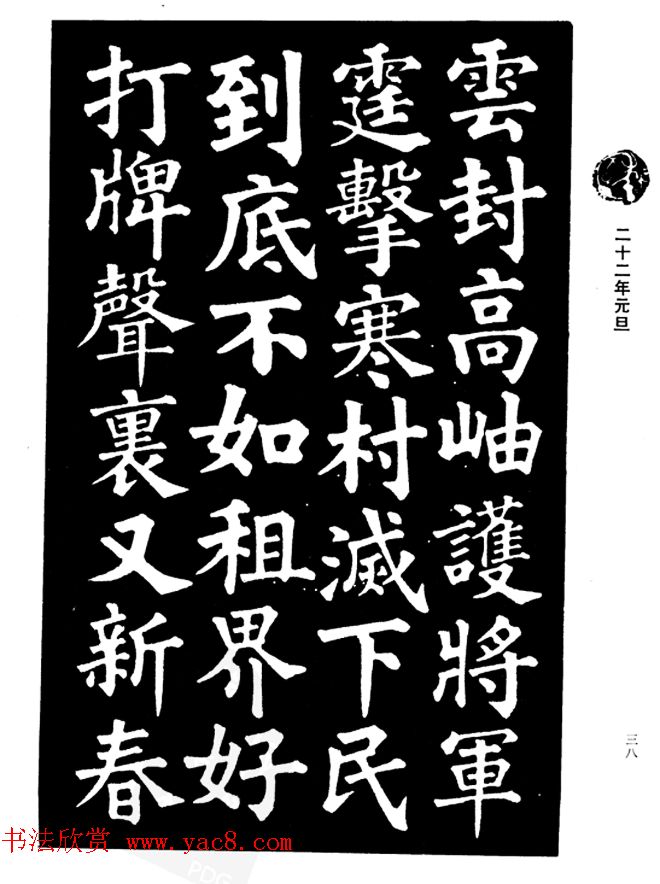 二十二年元旦
雲封高岫護將軍
霆擊寒村滅下民
到底不如租界好
打牌聲裏又新春
三八
书法欣赏 www.yac8.com
PDG